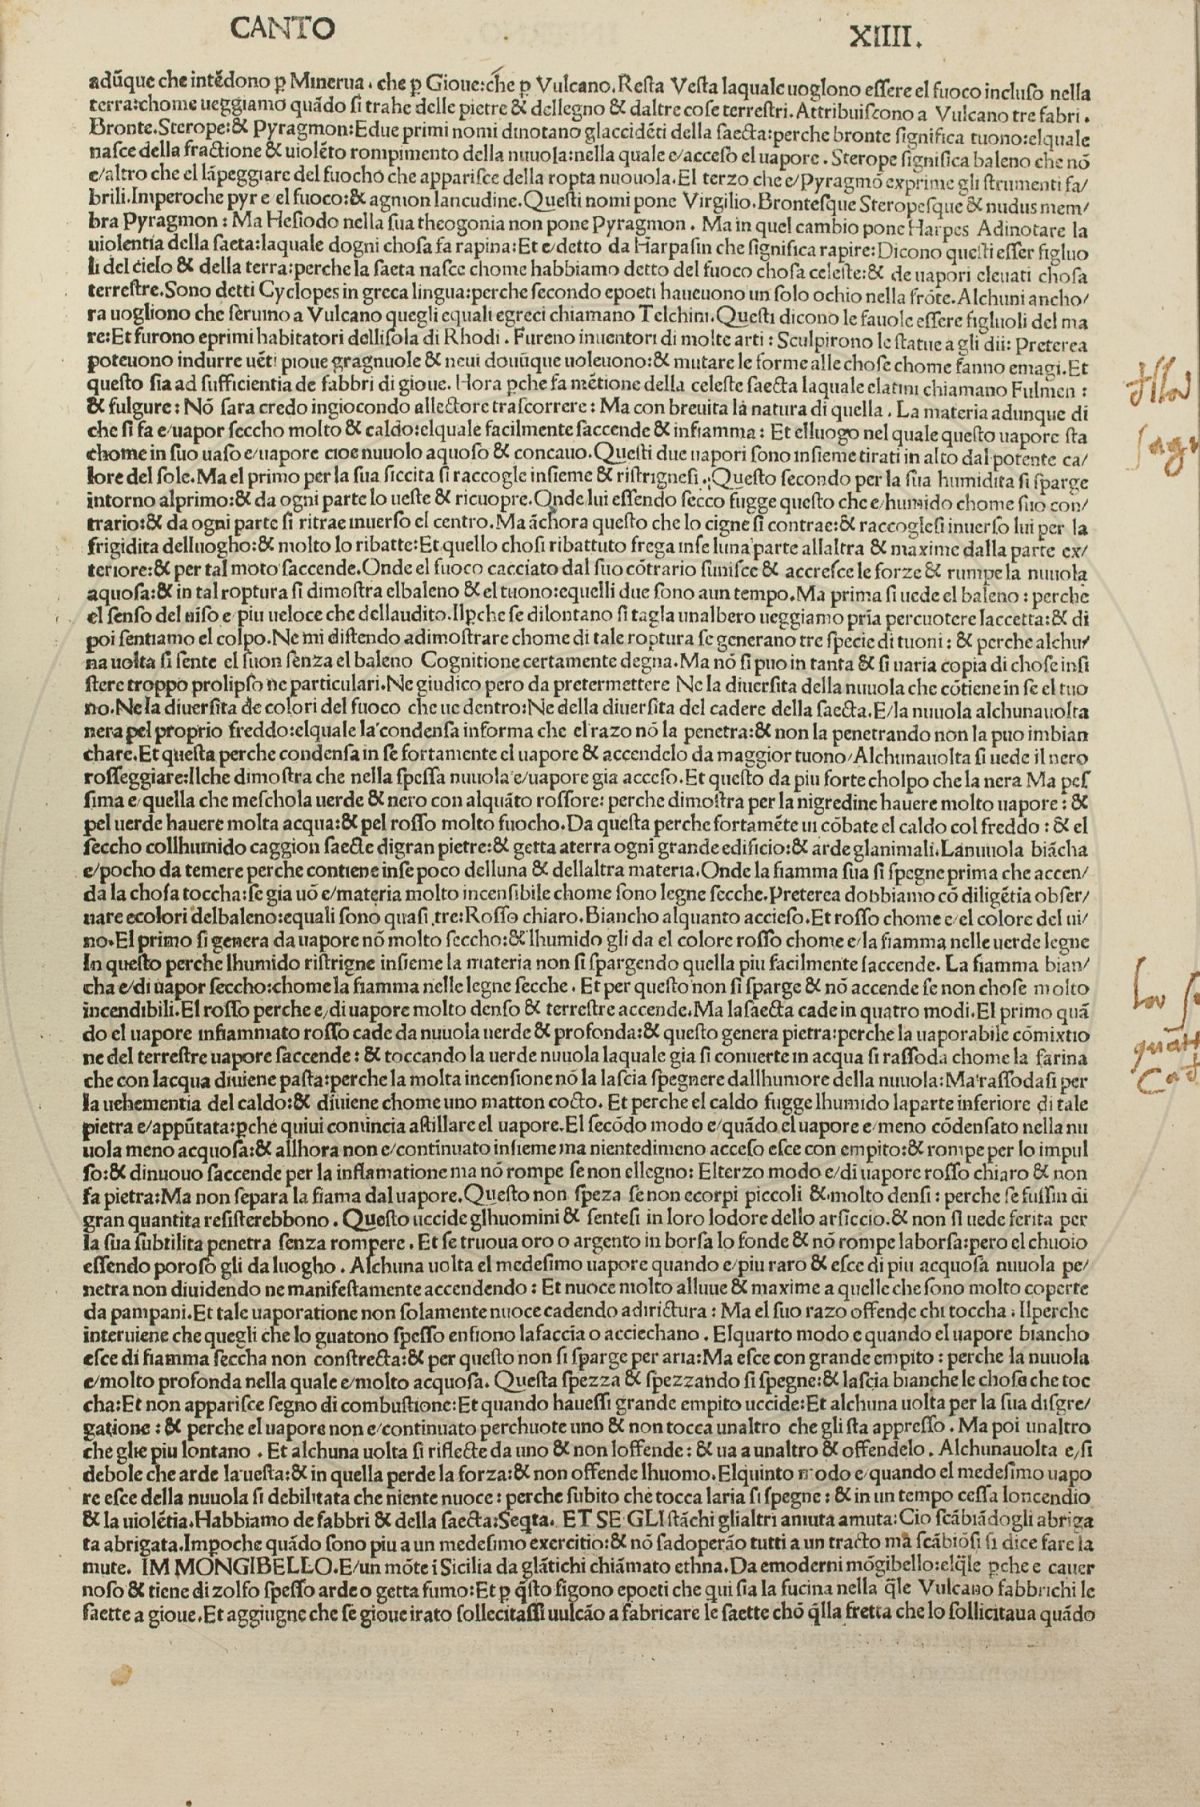 CANTO XIIII.
adūque che intēdono ꝑ Minerua. che ꝑ Gioue: che ꝑ Vulcano. Resta Vesta laquale uoglono essere el fuoco incluso nella
terra: chome ueggiamo quādo si trahe delle pietre & dellegno & daltre cose terrestri. Attribuiscono a Vulcano tre fabri.
Bronte. Sterope: & Pyragmon: Edue primi nomi dinotano glaccidēti della saecta: perche bronte significa tuono: elquale
nasce della fractione & uiolēto rompimento della nuuola: nella quale e/acceso el uapore. Sterope significa baleno che nō
e/altro che el lāpeggiare del fuocho che apparisce della ropta nuouola. El terzo che e/Pyragmō exprime gli strumenti fa/
brili. Imperoche pyr e el fuoco: & agmon lancudine. Questi nomi pone Virgilio. Brontesque Steropesque & nudus mem/
bra Pyragmon: Ma Hesiodo nella sua theogonia non pone Pyragmon. Ma in quel cambio pone Harpes Adinotare la
uiolentia della saeta: laquale dogni chosa fa rapina: Et e/detto da Harpasin che significa rapire: Dicono questi esser figluo
li del cielo & della terra: perche la saeta nasce chome habbiamo detto del fuoco chosa celeste: & de uapori eleuati chosa
terrestre. Sono detti Cyclopes in greca lingua: perche secondo epoeti haueuono un solo ochio nella frōte. Alchuni ancho/
ra uogliono che seruino a Vulcano quegli equali egreci chiamano Telchini. Questi dicono le fauole essere figluoli del ma
re: Et furono eprimi habitatori dellisola di Rhodi. Fureno inuentori di molte arti: Sculpirono le statue a gli dii: Preterea
poteuono indurre uēti pioue gragnuole & neui douūque uoleuono: & mutare le forme alle chose chome fanno emagi. Et
questo sia ad sufficientia de fabbri di gioue. Hora ꝑche fa mētione della celeste saecta laquale elatini chiamano Fulmen:
& fulgure: Nō sara credo ingiocondo allectore trascorrere: Ma con breuita la natura di quella. La materia adunque di
che si fa e/uapor seccho molto & caldo: elquale facilmente saccende & infiamma: Et elluogo nel quale questo uapore sta
chome in suo uaso e/uapore cioe nuuolo aquoso & concauo. Questi due uapori sono insieme tirati in alto dal potente ca/
lore del sole. Ma el primo per la sua siccita si raccogle insieme & ristrignesi.: Questo secondo per la sua humidita si sparge
intorno alprimo: & da ogni parte lo ueste & ricuopre. Onde lui essendo secco fugge questo che e/humido chome suo con/
trario: & da ogni parte si ritrae inuerso el centro. Ma āchora questo che lo cigne si contrae: & raccoglesi inuerso lui per la
frigidita delluogho: & molto lo ribatte: Et quello chosi ribattuto frega inse luna parte allaltra & maxime dalla parte ex/
teriore: & per tal moto saccende. Onde el fuoco cacciato dal suo cōtrario sunisce & accresce le forze & rumpe la nuuola
aquosa: & in tal roptura si dimostra elbaleno & el tuono: equelli due sono aun tempo. Ma prima si uede el baleno: perche
el senso del uiso e/piu ueloce che dellaudito. Ilꝑche se dilontano si tagla unalbero ueggiamo pria percuotere laccetta: & di
poi sentiamo el colpo. Ne mi distendo adimostrare chome di tale roptura se generano tre specie di tuoni: & perche alchu/
na uolta si sente el suon senza el baleno Cognitione certamente degna. Ma nō si puo in tanta & si uaria copia di chose insi
stere troppo prolipso ne particulari. Ne giudico pero da pretermettere Ne la diuersita della nuuola che cōtiene in se el tuo
no. Ne la diuersita de colori del fuoco che ue dentro: Ne della diuersita del cadere della saecta. E/la nuuola alchunauolta
nera pel proprio freddo: elquale la condensa informa che el razo nō la penetra: & non la penetrando non la puo imbian
chare. Et questa perche condensa in se fortamente el uapore & accendelo da maggior tuono/Alchunauolta si uede il nero
rosseggiare: Ilche dimostra che nella spessa nuuola e/uapore gia acceso. Et questo da piu forte cholpo che la nera Ma pes
sima e/quella che meschola uerde & nero con alquāto rossore: perche dimostra per la nigredine hauere molto uapore: &
pel uerde hauere molta acqua: & pel rosso molto fuocho. Da questa perche fortamēte ui cōbate el caldo col freddo: & el
seccho collhumido caggion saecte digran pietre: & getta aterra ogni grande edificio: & arde glanimali. Lanuuola biācha
e/pocho da temere perche contiene inse poco delluna & dellaltra materia. Onde la fiamma sua si spegne prima che accen/
da la chosa toccha: se gia uō e/materia molto incensibile chome sono legne secche. Preterea dobbiamo cō diligētia obser/
uare ecolori delbaleno: equali sono quasi tre: Rosso chiaro. Biancho alquanto accieso. Et rosso chome e/el colore del ui/
no. El primo si genera da uapore nō molto seccho: & lhumido gli da el colore rosso chome e/la fiamma nelle uerde legne
In questo perche lhumido ristrigne insieme la materia non si spargendo quella piu facilmente saccende. La fiamma bian/
cha e/di uapor seccho: chome la fiamma nelle legne secche. Et per questo non si sparge & nō accende se non chose molto
incendibili. El rosso perche e/di uapore molto denso & terrestre accende. Ma la saecta cade in quatro modi. El primo quā
do el uapore infiammato rosso cade da nuuola uerde & profonda: & questo genera pietra: perche la uaporabile cōmixtio
ne del terrestre uapore saccende: & toccando la uerde nuuola laquale gia si conuerte in acqua si rassoda chome la farina
che con lacqua diuiene pasta: perche la molta incensione nō la lascia spegnere dallhumore della nuuola: Ma rassodasi per
la uehementia del caldo: & diuiene chome uno matton cocto. Et perche el caldo fugge lhumido laparte inferiore di tale
pietra e/appūtata: ꝑche quiui comincia astillare el uapore. El secōdo modo e/quādo el uapore e/meno cōdensato nella nu
uola meno acquosa: & allhora non e/continuato insieme ma nientedimeno acceso esce con empito: & rompe per lo impul
so: & dinuouo saccende per la inflamatione ma nō rompe se non ellegno: Elterzo modo e/di uapore rosso chiaro & non
fa pietra: Ma non separa la fiama dal uapore. Questo non speza se non ecorpi piccoli & molto densi: perche se fussin di
gran quantita resisterebbono. Questo uccide glhuomini & sentesi in loro lodore dello arsiccio. & non si uede ferita per
la sua subtilita penetra senza rompere. Et se truoua oro o argento in borsa lo fonde & nō rompe laborsa: pero el chuoio
essendo poroso gli da luogho. Alchuna uolta el medesimo uapore quando e/piu raro & esce di piu acquosa nuuola pe/
netra non diuidendo ne manifestamente accendendo: Et nuoce molto alluue & maxime a quelle che sono molto coperte
da pampani. Et tale uaporatione non solamente nuoce cadendo adirictura: Ma el suo razo offende chi toccha. Ilperche
interuiene che quegli che lo guatono spesso enfiono lafaccia o acciechano. Elquarto modo e quando el uapore biancho
esce di fiamma seccha non constrecta: & per questo non si sparge per aria: Ma esce con grande empito: perche la nuuola
e/molto profonda nella quale e/molto acquosa. Questa spezza & spezzando si spegne: & lascia bianche le chosa che toc
cha: Et non apparisce segno di combustione: Et quando hauessi grande empito uccide: Et alchuna uolta per la sua disgre/
gatione: & perche el uapore non e/continuato perchuote uno & non tocca unaltro che gli sta appresso. Ma poi unaltro
che glie piu lontano. Et alchuna uolta si riflecte da uno & non loffende: & ua a unaltro & offendelo. Alchunauolta e/si
debole che arde la uesta: & in quella perde la forza: & non offende lhuomo. Elquinto modo e/quando el medesimo uapo
re esce della nuuola si debilitata che niente nuoce: perche subito che tocca laria si spegne: & in un tempo cessa loncendio
& la uiolētia. Habbiamo de fabbri & della saecta: Seqta. ET SE GLI stāchi glialtri amuta amuta: Cio scābiādogli abriga
ta abrigata. Impoche quādo sono piu a un medesimo exercitio: & nō sadoperāo tutti a un tracto ma scābiōsi si dice fare la
mute. IM MONGIBELLO. E/un mōte ī Sicilia da glātichi chiāmato ethna. Da emoderni mōgibello: elq̄le ꝑche e cauer
noso & tiene di zolfo spesso arde o getta fumo: Et ꝑ q̄sto figono epoeti che qui sia la fucina nella q̄le Vulcano fabbrichi le
saette a gioue. Et aggiugne che se gioue irato sollecitassi uulcāo a fabricare le saette chō q̄lla fretta che lo sollicitaua quādo